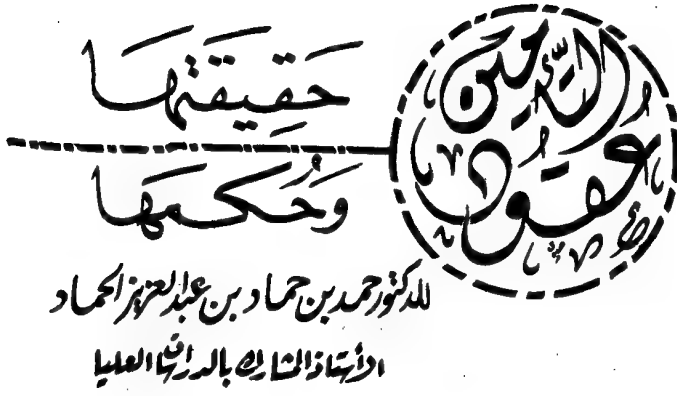 عقود التأمين
حَقِيقَتهَا
وَحُكمهَا
للدكتور حمد بن حماد بن عبد العزيز الحماد
الأستاذ المشارك بالدراسات العليا